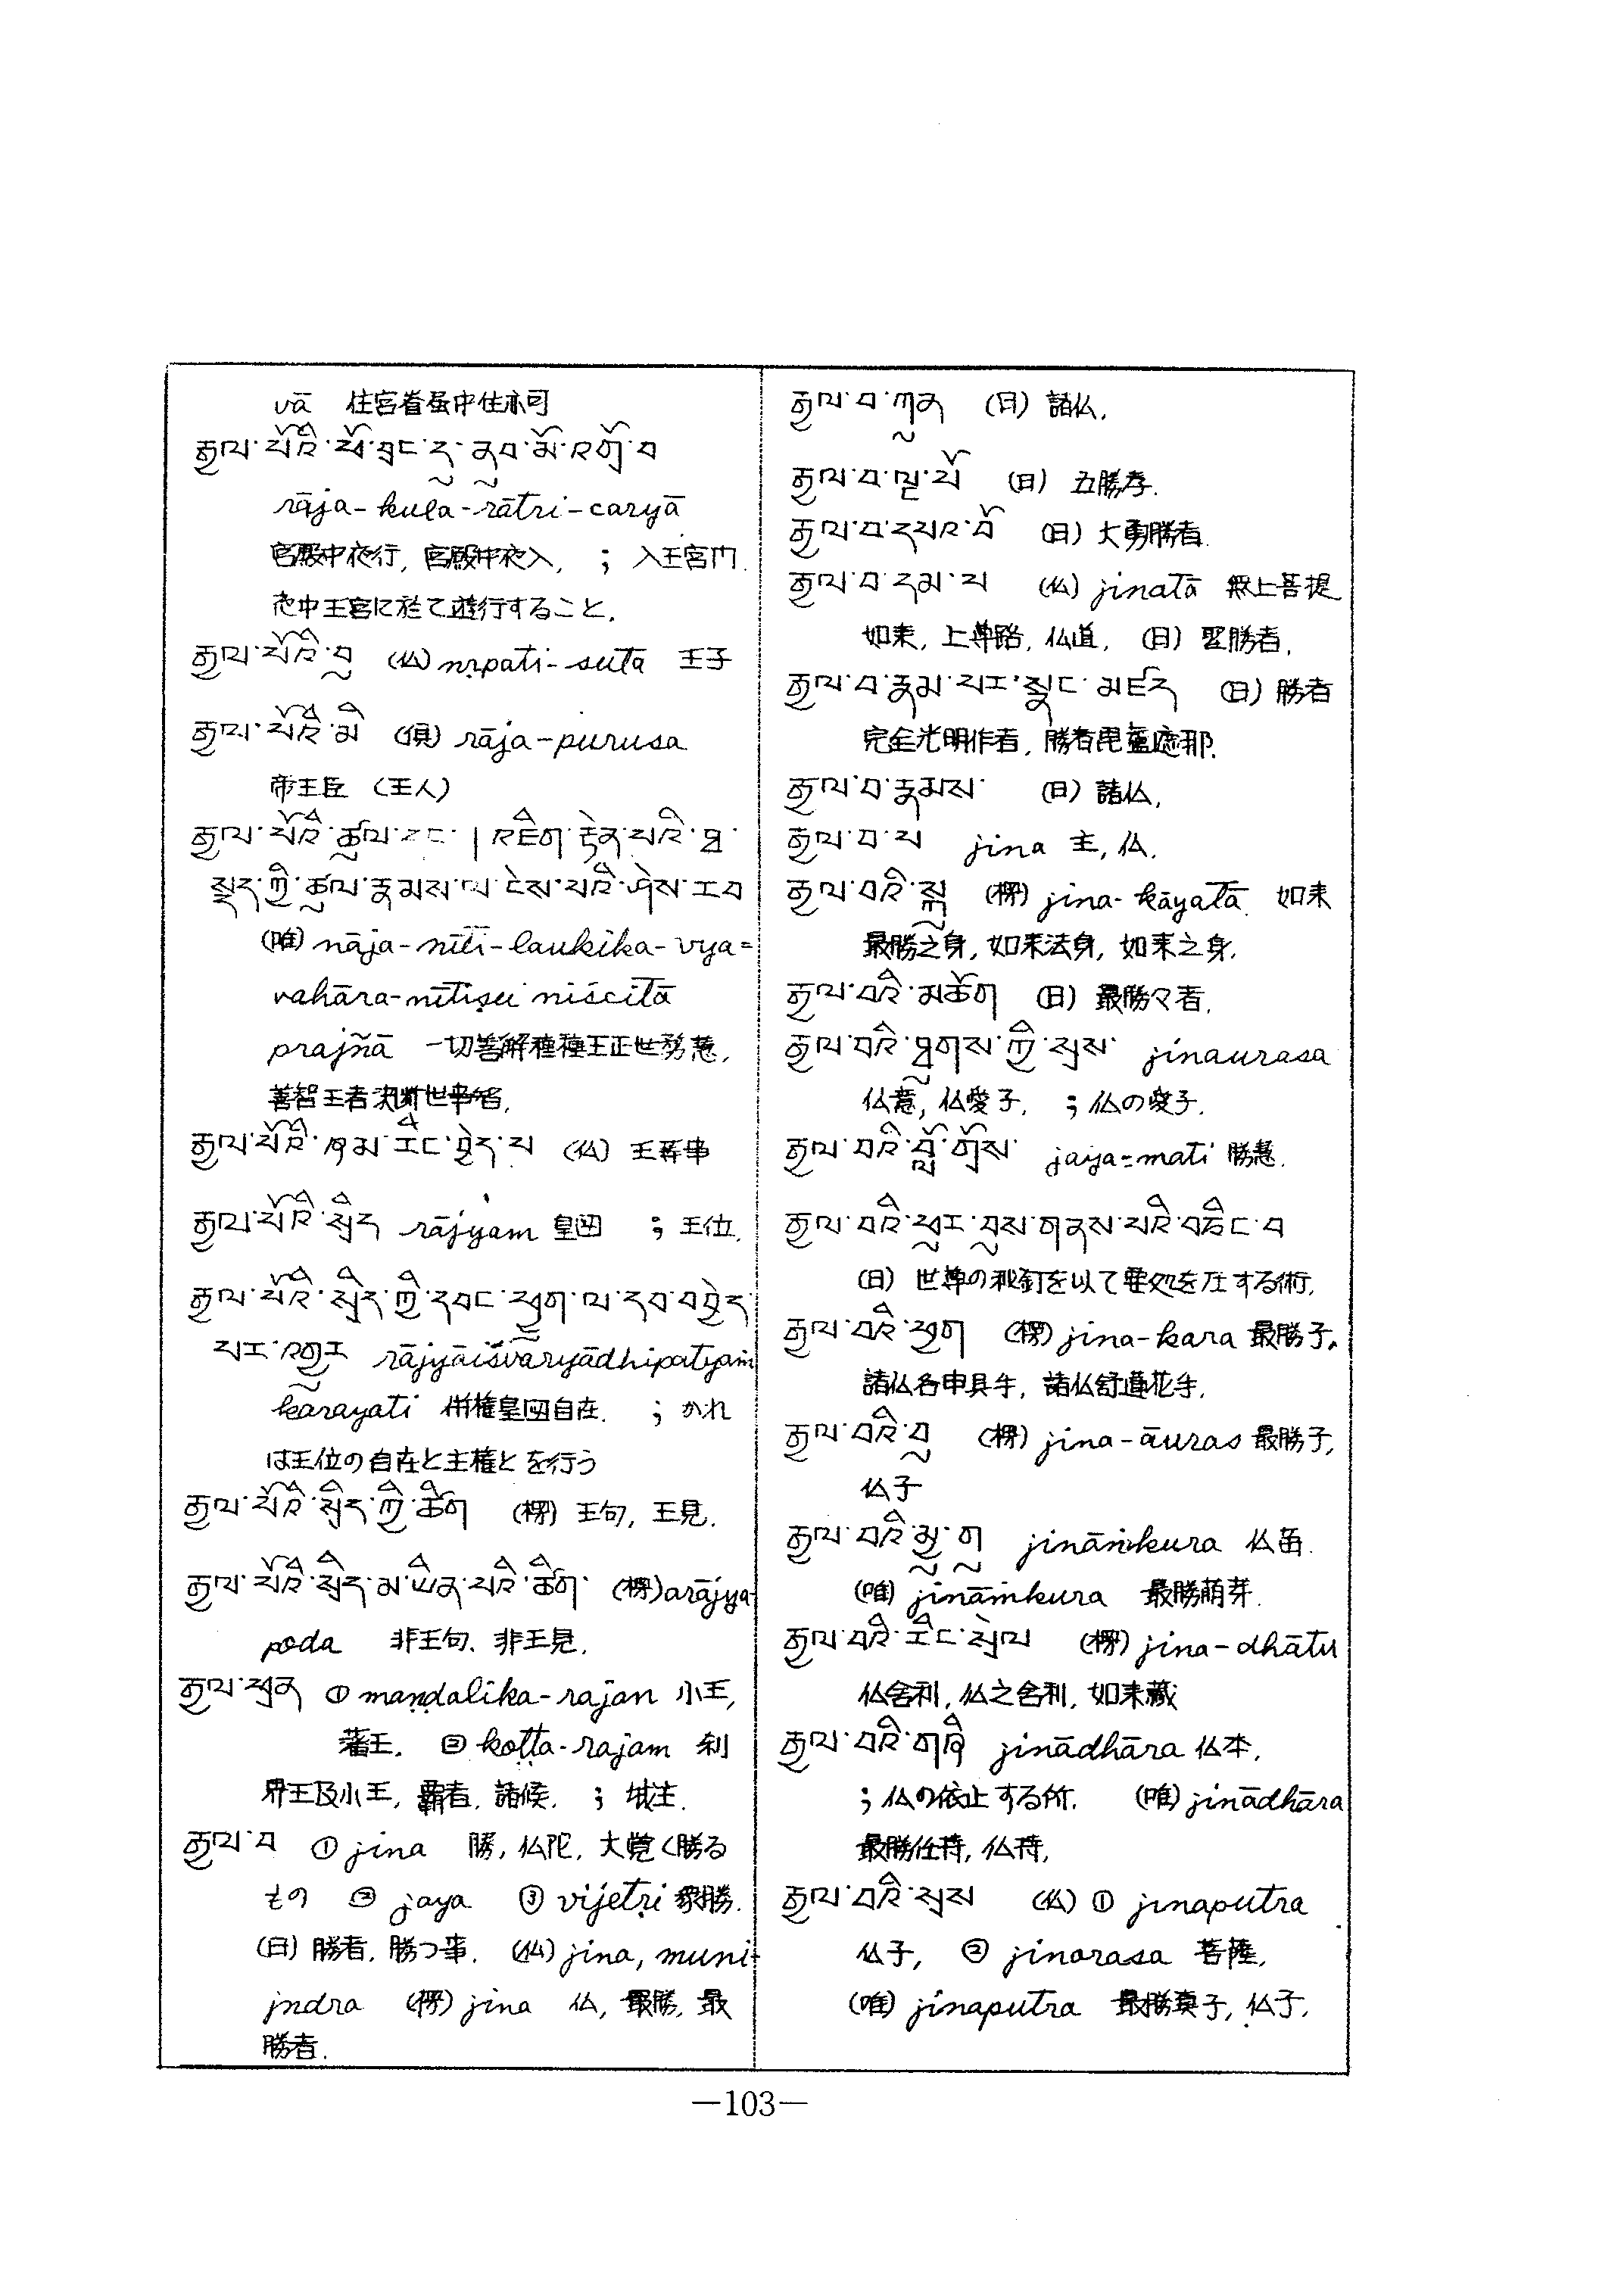 vā 住宮者蚤中住亦可
རྒྱལ་པོའི་ཕོ་བྲང་དུ་ནུབ་མོ་འགྲོ་བ
rāja-kula-rātri-caryā
宮殿中夜行, 宮殿中夜入, ; 入王宮門.
夜中王宮に於て遊行すること.
རྒྱལ་པོའི་བུ (仏) nṛpati-sutā 王子
རྒྱལ་པོའི་མི (倶) rāja-purusa
帝王臣 (王人)
རྒྱལ་པོའི་ཚུལ་དང་།འཇིག་རྟེན་པའི་ཐ་
སྙད་ཀྱི་ཚུལ་རྣམས་ལ་ངེས་པའི་ཤེས་རབ
(唯) nāja-nīti-laukika-vya=
vahāra-nītiṣu niścitā
prajñā 一切善解種種王正世務慧,
善智王者決断世事智,
རྒྱལ་པོའི་ཞམ་རིང་བྱེད་པ (仏) 王莽事
རྒྱལ་པོའི་སྲིད rājyam 皇図 ; 王位.
རྒྱལ་པོའི་སྲིད་ཀྱི་དབང་ཕྱུག་ལ་དབ་བབྱེད་
པར་འགྱུར rājyāiśvaryādhipatyaṁ
kārayati 併権皇図自在. ; かれ
は王位の自在と主権とを行う
རྒྱལ་པོའི་སྲིད་ཀྱི་ཚིག (楞) 王句, 王見.
རྒྱལ་པོའི་སྲིད་མ་ཡིན་པའི་ཚིག་ (楞) arājya-
poda 非王句, 非王見,
རྒྱལ་ཕྲན ① maṇḍalika-rajan 小王,
藩王, ② koṭṭa-rajam 刹
界王及小王, 覇者, 諸候. ; 城主.
རྒྱལ་བ ① jina 勝, 仏陀, 大覚く勝る
もの ② jaya ③ vijetṛi 衆勝.
(日) 勝者, 勝つ事. (仏) jina, muni-
jndra (楞) jina 仏, 最勝, 最
勝者.
རྒྱལ་བ་ཀུན (日) 諸仏,
རྒྱལ་བ་ལྔ་པོ (日) 五勝存.
རྒྱལ་བ་དཔའ་བོ (日) 大勇勝者.
རྒྱལ་བ་དམ་པ (仏) jinatā 無上菩提
如来, 上尊路, 仏道, (日) 聖勝者,
རྒྱལ་བ་རྣམ་པར་སྣང་མཛད (日) 勝者
完全光明作者, 勝者毘盧遮那.
རྒྱལ་བ་རྣམས་ (日) 諸仏,
རྒྱལ་བ་པ jina 主, 仏.
རྒྱལ་བའི་སྐུ (楞) jina-kāyatā 如来
最勝之身, 如来法身, 如来之身.
རྒྱལ་བའི་མཆོག (日) 最勝々者,
རྒྱལ་བའི་ཐུགས་ཀྱི་སྲས་ jinaurasa
仏意, 仏愛子, ; 仏の愛子.
རྒྱལ་བའི་བློ་གྲོས་ jaya=mati 勝慧.
རྒྱལ་བའི་ཕུར་བུས་གནས་པའི་བཅིང་བ
(日) 世尊の秘釘を以て要処を圧する術,
རྒྱལ་བའི་ཕྱག (楞) jina-kara 最勝子,
諸仏各申具手, 諸仏舒蓮花手,
རྒྱལ་བའི་བུ (楞) jina-āuras 最勝子,
仏子
རྒྱལ་བའི་མྱུ་གུ jināṁkura 仏苗.
(唯) jināṁkura 最勝萌芽.
རྒྱལ་བའི་རིང་སྲེལ (楞) jina-dhātu
仏舎利, 仏之舎利, 如来蔵
རྒྱལ་བའི་གཞི jinādhāra 仏本,
; 仏の依止する所. (唯) jinādhāra
最勝任持, 仏持,
རྒྱལ་བའི་སྲས (仏) ① jinaputra
仏子, ② jinorasa 菩薩,
(唯) jinaputra 最勝真子, 仏子,
—103—